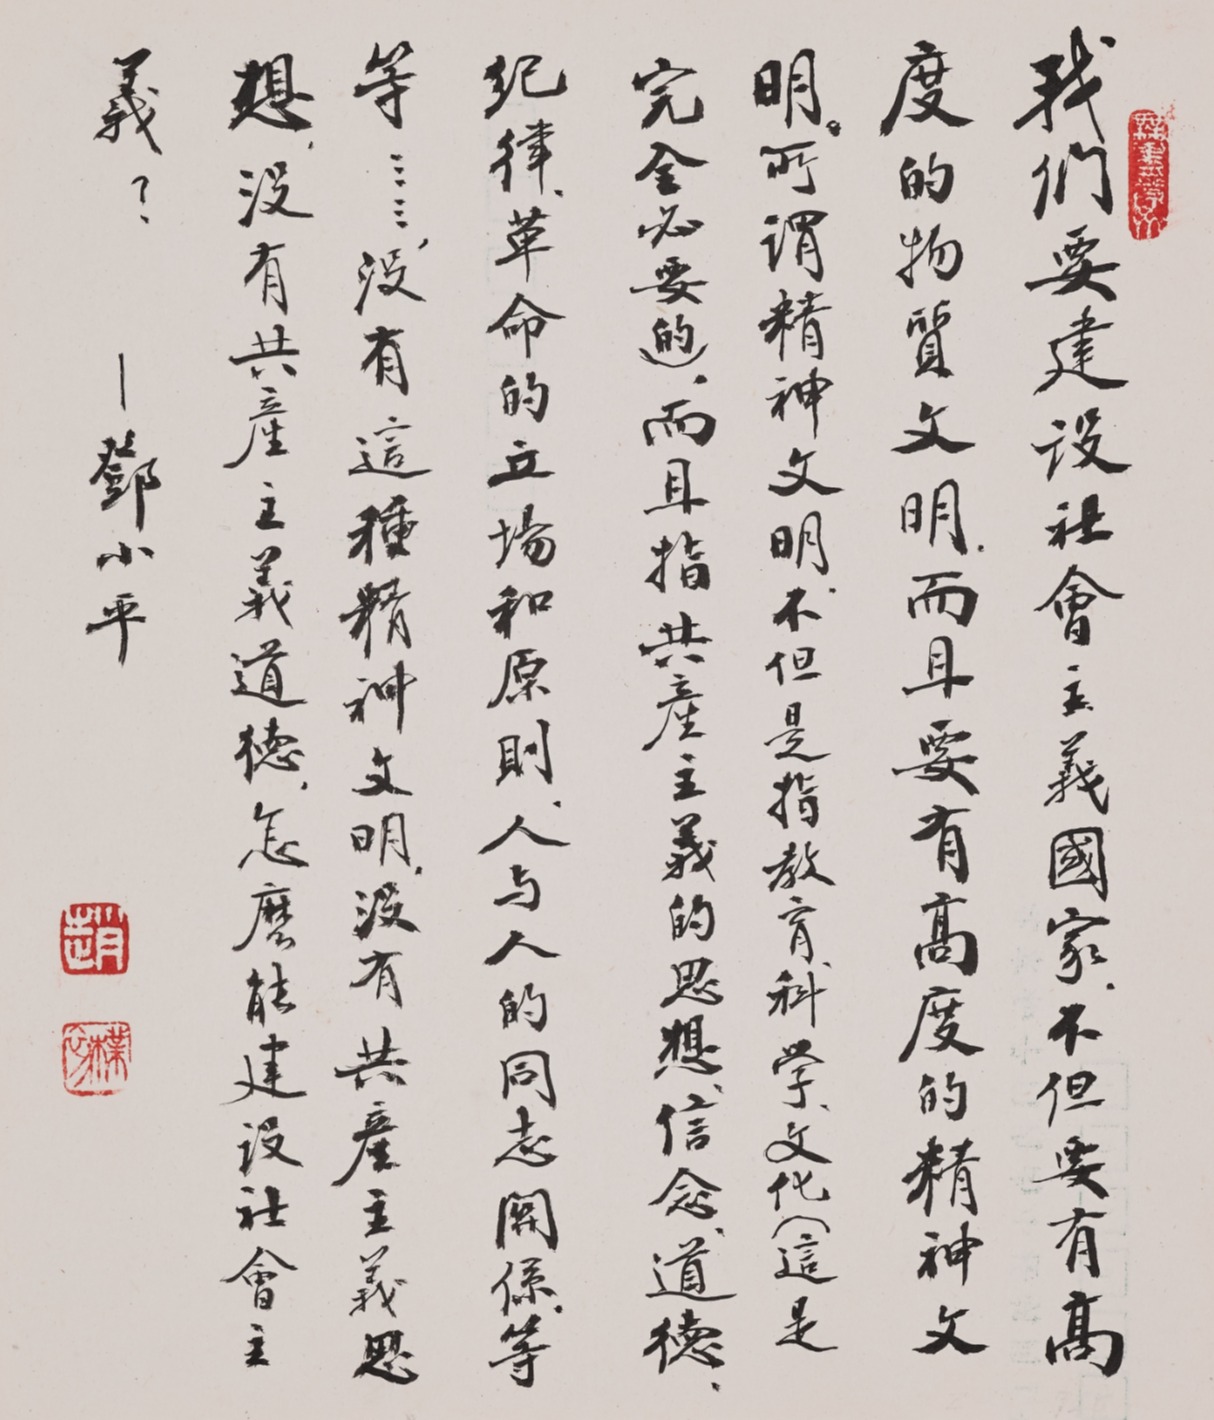 我们要建设社會主義國家,不但要有髙
度的物質文明,而且要有髙度的精神文
明。所谓精神文明,不但是指教育、科学、文化(這是
完全必要的),而且指共產主義的思想、信念、道德、
纪律,革命的立場和原則,人与人的同志關係,等
等……,没有這種精神文明,没有共產主義思
想,没有共產主義道德,怎麽能建設社會主
義?
—鄧小平
趙